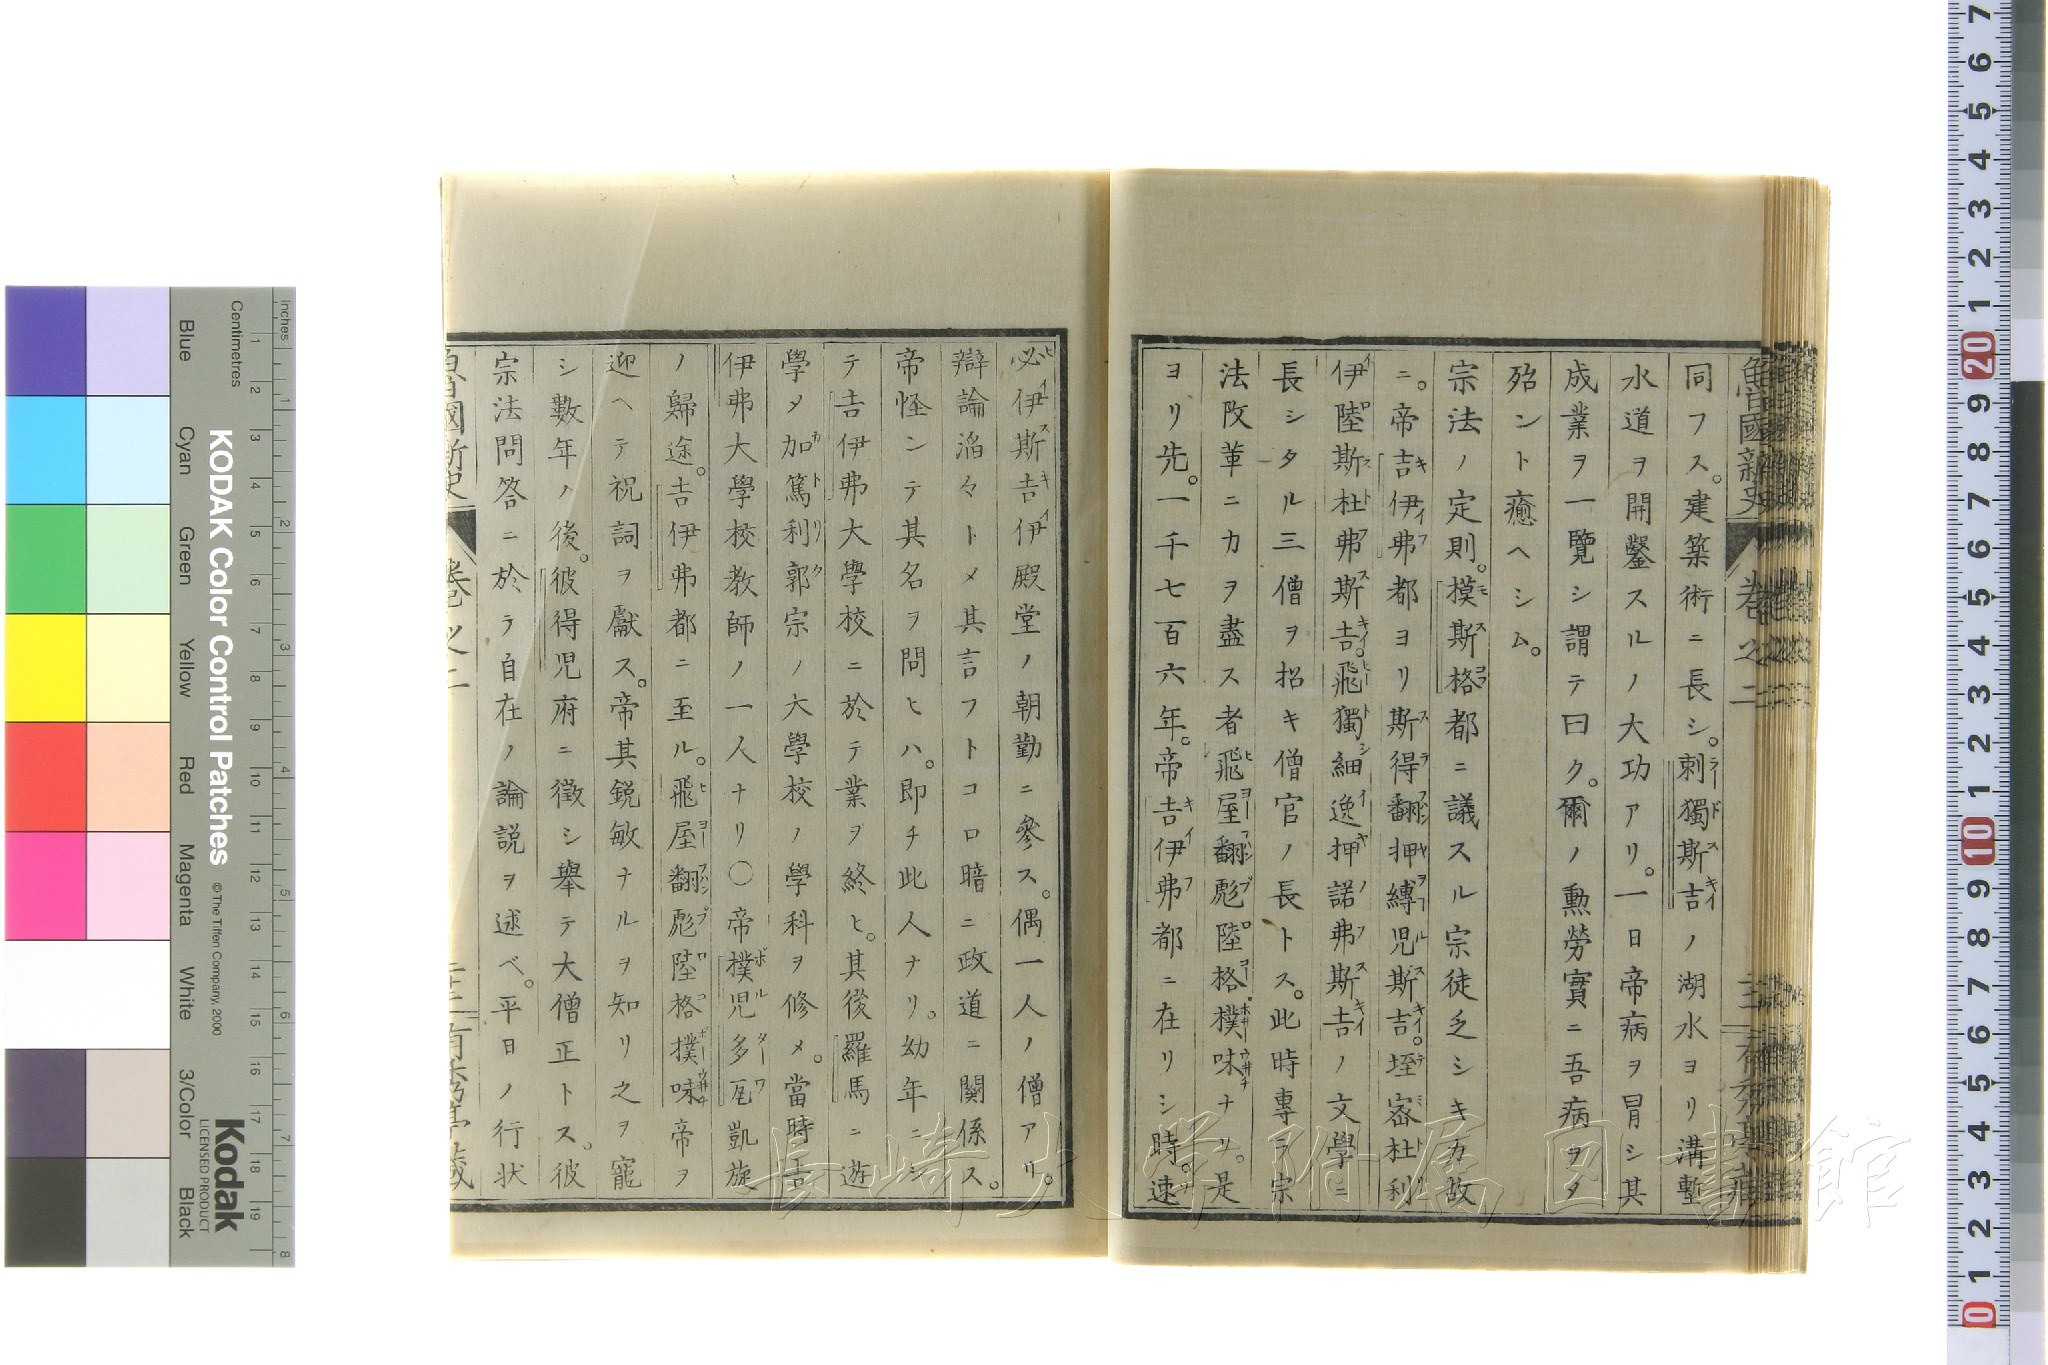 同フス。建築術ニ長シ。刺獨斯吉ノ湖水ヨリ溝塹
水道ヲ開鑿スルノ大功アリ。一日帝病ヲ冒シ其
成業ヲ一覽シ謂テ曰ク。爾ノ勲勞實ニ吾病ヲタ
殆ント癒ヘシム。
宗法ノ定則。摸斯格都ニ議スル宗徒乏シキカ故
ニ。帝吉伊弗都ヨリ斯得翻押縛児斯吉。垤宻杜利
伊陸斯杜弗斯吉。飛獨細逸押諾弗斯吉ノ文學ニ
長シタル三僧ヲ招キ僧官ノ長トス。此時専ヲ宗
法改革ニカヲ盡ス者飛屋翻彪陸格撲味ナリ。是
ヨリ先。一千七百六年。帝吉伊弗都ニ在リシ時。速
必伊斯吉伊殿堂ノ朝勤ニ參ス。偶一人ノ僧アリ。
辯論滔々トメ其言フトコロ暗ニ政道ニ關係ス。
帝怪ンテ其名ヲ問ヒハ。即チ此人ナリ。幼年ニシ
テ吉伊弗大學校ニ於テ業ヲ終ヒ。其後羅馬ニ遊
學メ加篤利郭宗ノ大學校ノ學科ヲ修メ。當時吉
伊弗大學校教師ノ一人ナリ〇帝撲児多瓦凱旋
ノ歸途。吉伊弗都ニ至ル。飛屋翻彪陸格撲味帝ヲ
迎ヘテ祝詞ヲ獻ス。帝其鋭敏ナルヲ知リ之ヲ寵
シ數年ノ後。彼得児府ニ徴シ擧テ大僧正トス。彼
宗法問答ニ於テ自在ノ論説ヲ述ベ。平日ノ行状
魯國新史 巻之二
長崎大学附属図書館
KODAK Color Control Patches
© The Tiffen Company, 2000
Kodak
LICENSED PRODUCT
Centimetres
Inches
Blue
Cyan
Green
Yellow
Red
Magenta
White
3/Color
Black